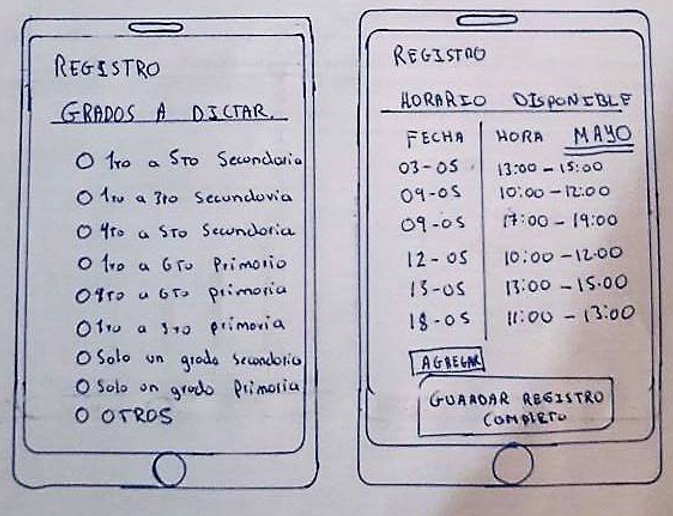 REGISTRO
GRADOS A DICTAR.
1ro a 5to Secundaria
1ro a 3ro Secundaria
4to a 5to Secundaria
1ro a 6to Primaria
4to a 6to primaria
1ro a 3ro primaria
Solo un grado Secundaria
Solo un grado Primaria
OTROS
REGISTRO
HORARIO DISPONIBLE
FECHA HORA MAYO
03-05 13:00 - 15:00
09-05 10:00 - 12:00
09-05 17:00 - 19:00
12-05 10:00 - 12.00
15-05 13:00 - 15.00
18-05 11:00 - 13:00
AGREGAR
GUARDAR REGISTRO
COMPLETO